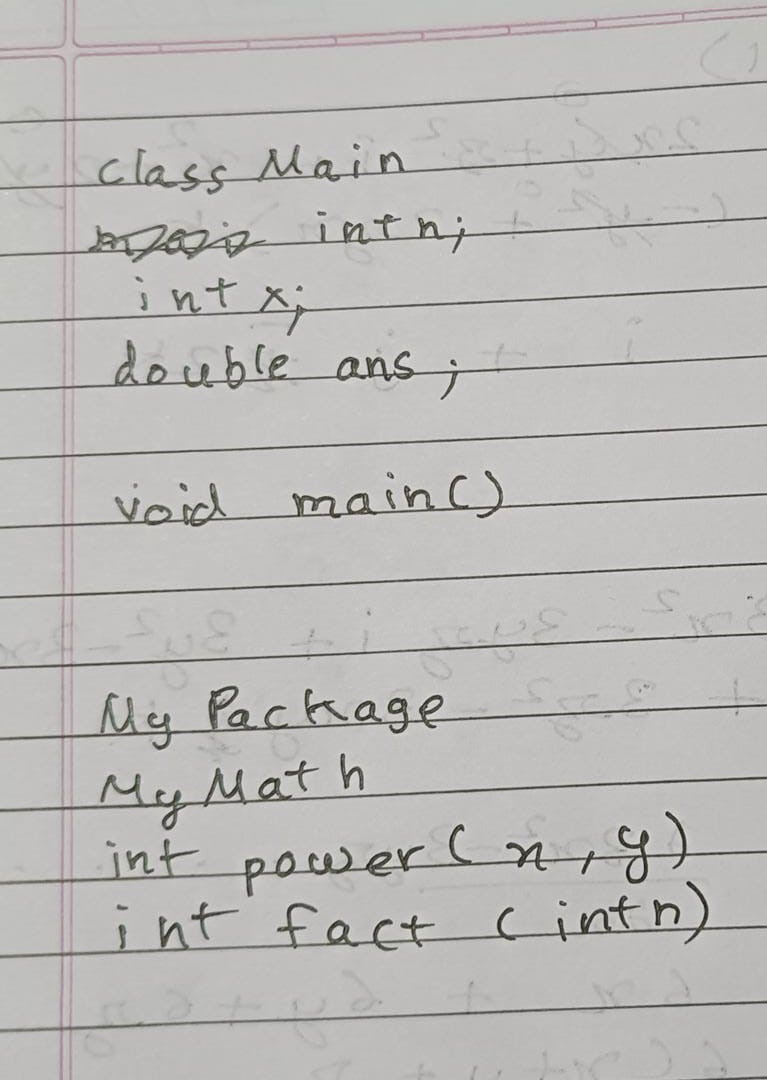 class Main
int n;
int x;
double ans;
void main()
My Package
My Math
int power (x, y)
int fact (int n)